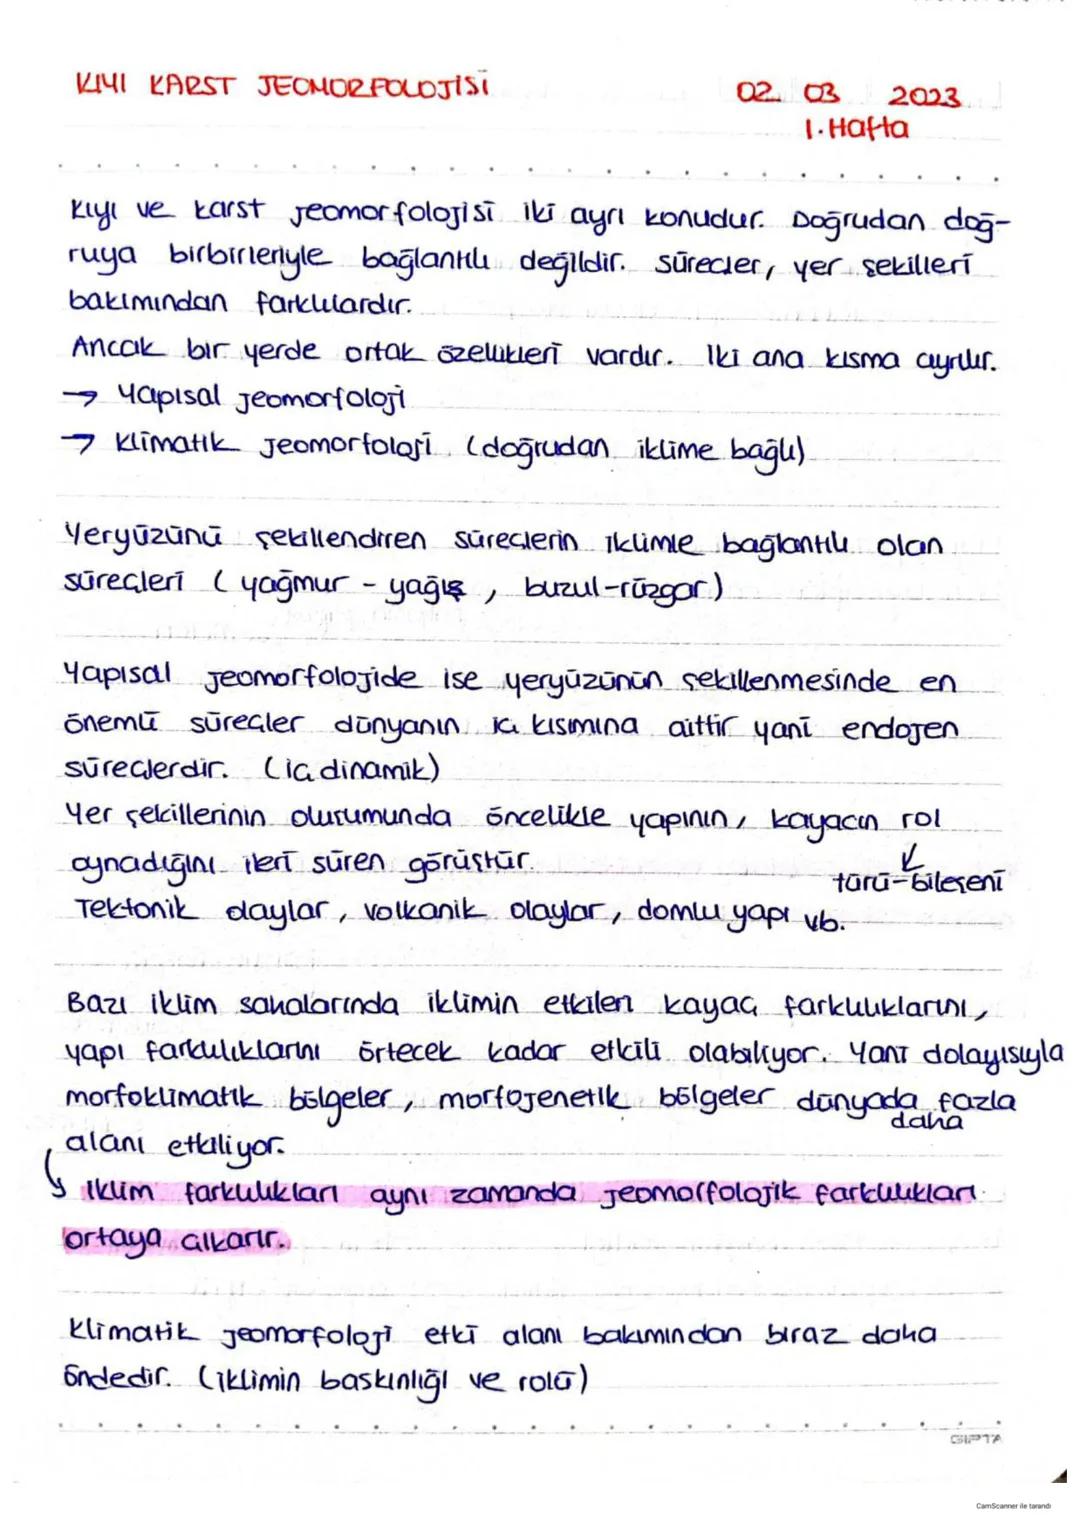 KIYI KARST JEOMORFOLOJİSİ
02.03 2023
1.Hafta
Kıyı ve karst jeomorfolojisi iki ayrı konudur. Doğrudan doğ-
ruya birbirleriyle bağlantılı değildir. Süreçler, yer şekilleri
bakımından farklılardır.
Ancak bir yerde ortak özellikleri vardır. İki ana kısma ayrılır.
→ Yapısal jeomorfoloji
→ Klimatik jeomorfoloji (doğrudan iklime bağlı)
Yeryüzünü şekillendiren süreçlerin iklimle bağlantılı olan
süreçleri (yağmur - yağış, buzul-rüzgar)
Yapısal jeomorfolojide ise yeryüzünün şekillenmesinde en
önemli süreçler dünyanın iç kısmına aittir yani endojen
süreçlerdir. (iç dinamik)
Yer şekillerinin oluşumunda öncelikle yapının, kayacın rol
oynadığını ileri süren görüştür.
↓ türü-bileşeni
Tektonik olaylar, volkanik olaylar, domlu yapı vb.
Bazı iklim sahalarında iklimin etkileri kayaç farklılıklarını,
yapı farklılıklarını örtecek kadar etkili olabiliyor. Yani dolayısıyla
morfoklimatik bölgeler, morfojenetik bölgeler dünyada fazla
daha
alanı etkiliyor.
↳ İklim farklılıkları aynı zamanda jeomorfolojik farklılıkları
ortaya çıkarır.
Klimatik jeomorfoloji etki alanı bakımından biraz daha
öndedir. (iklimin baskınlığı ve rolü)
GIPTA
CamScanner ile tarandı